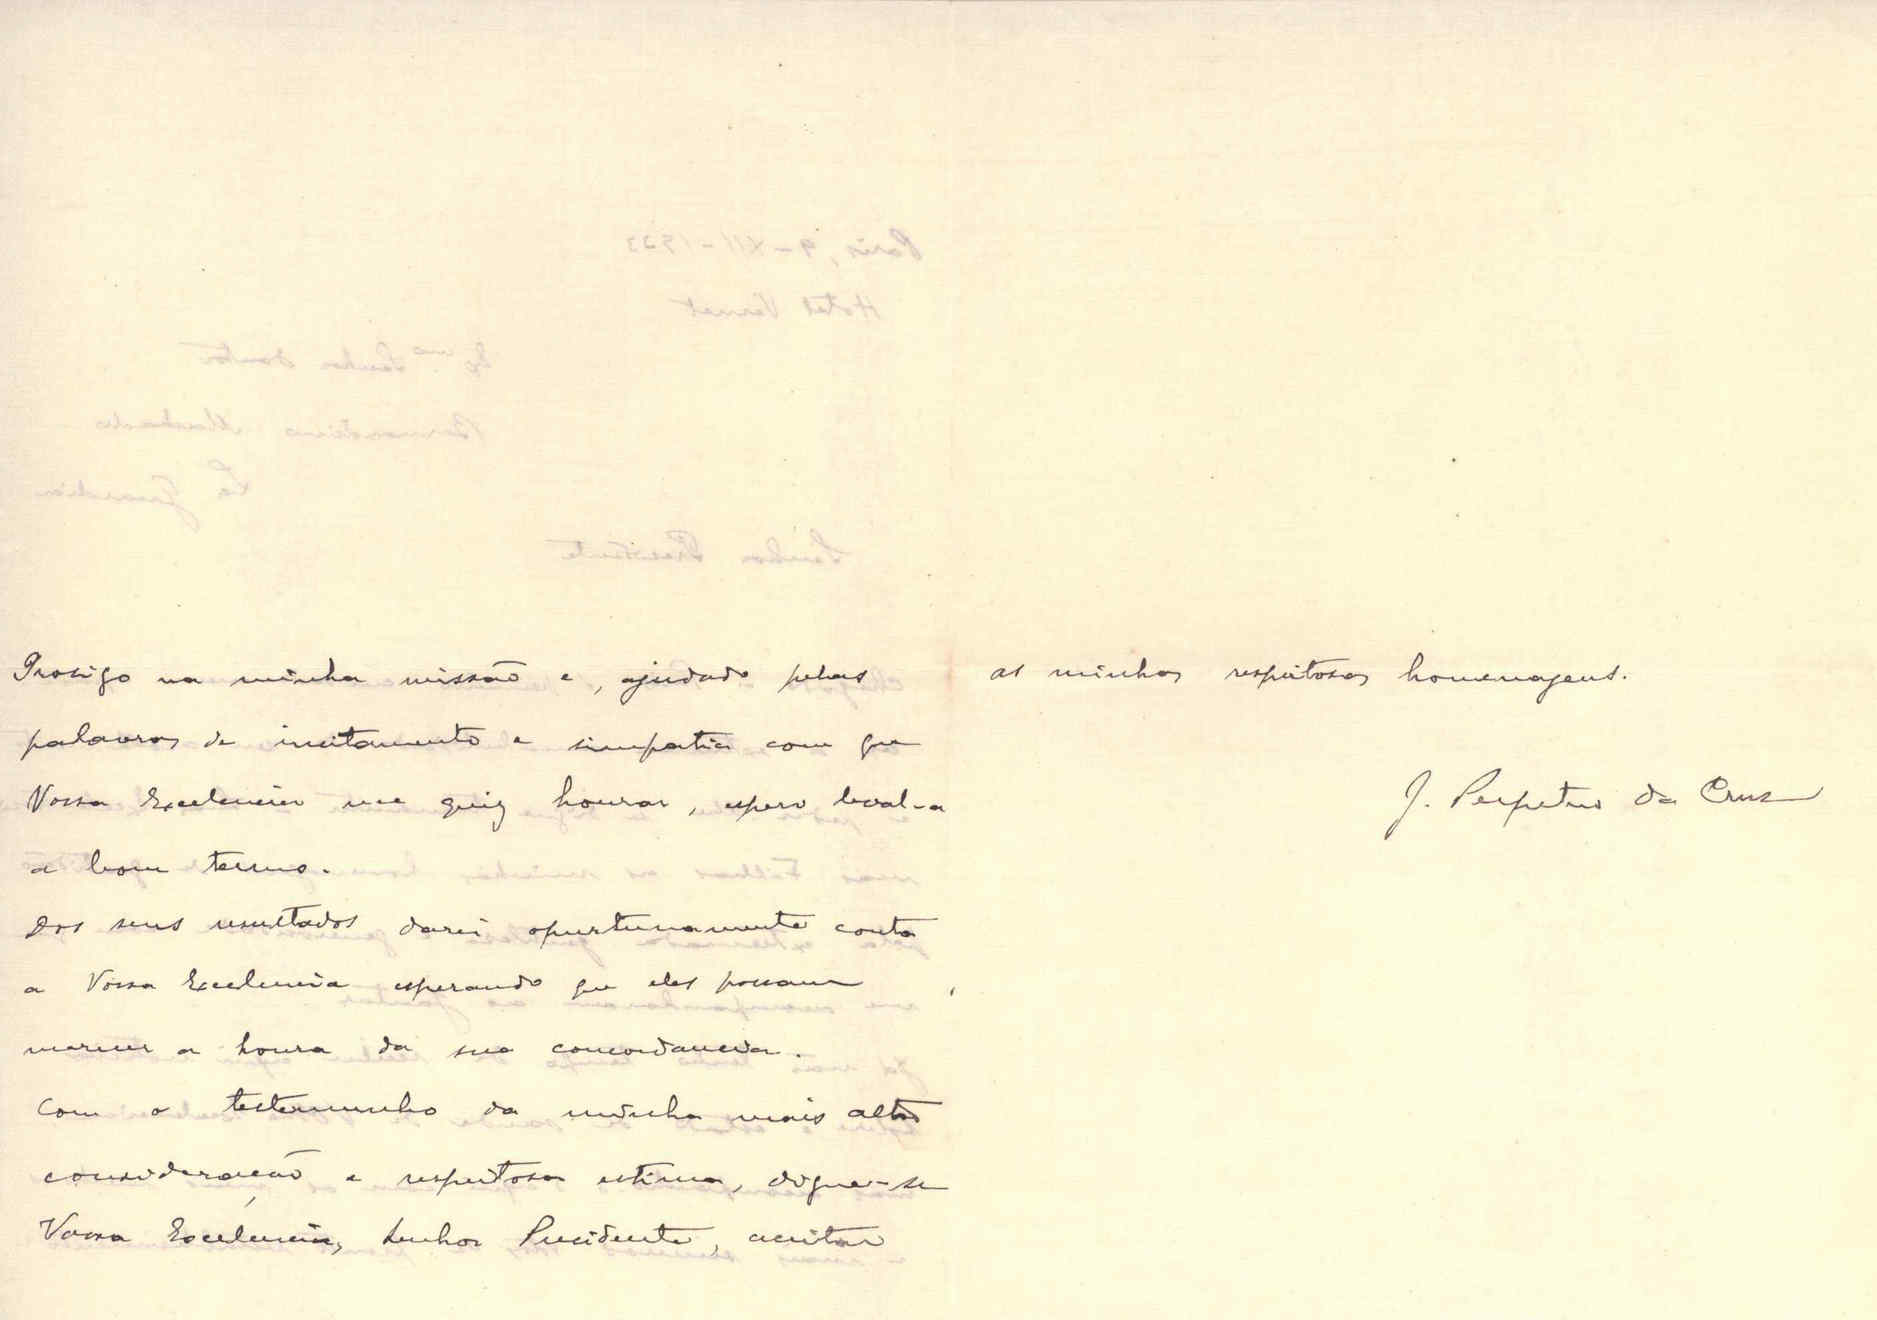 Prosigo na minha missão e, ajudado pelas
palavras de incitamento e simpatia com que
Vossa Excelencia me quiz honrar, espero leval-a
a bom termo.
Dos seus resultados darei oportunamente conta
a Vossa Excelencia esperando que eles possam
merecer a honra da sua concordancia.
Com o testemunho da minha mais alta
consideração e respeitosa estima, digne-se
Vossa Excelencia, Senhor Presidente, aceitar
as minhas respeitosas homenagens.
J. Perpetuo da Cruz